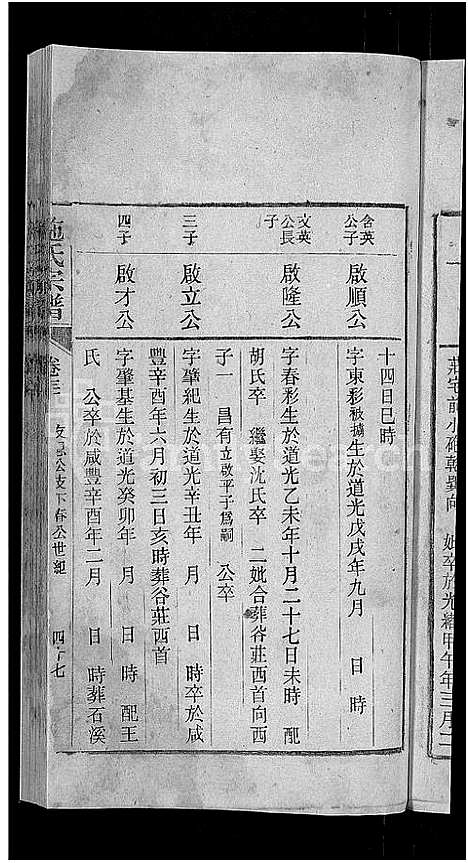 莊宅前小砲乾巽向 妣卒於光緒甲午年三月二
十四日巳時
含英公子 啟順公 字東彩被擄生於道光戊戌年九月 日 時
文英公長子 啟隆公 字春彩生於道光乙未年十月二十七日未時 配
胡氏卒 繼娶沈氏卒 二妣合葬谷莊西首向西
子一 昌有立啟平子爲嗣 公卒
三子 啟立公 字肇紀生於道光辛丑年 月 日 時卒於咸
豐辛酉年六月初三日亥時葬谷莊西首
四子 啟才公 字肇基生於道光癸卯年 月 日 時 配王
氏 公卒於咸豐辛酉年二月 日 時葬石溪
施氏宗譜 卷三 支下春公世紀 四十七